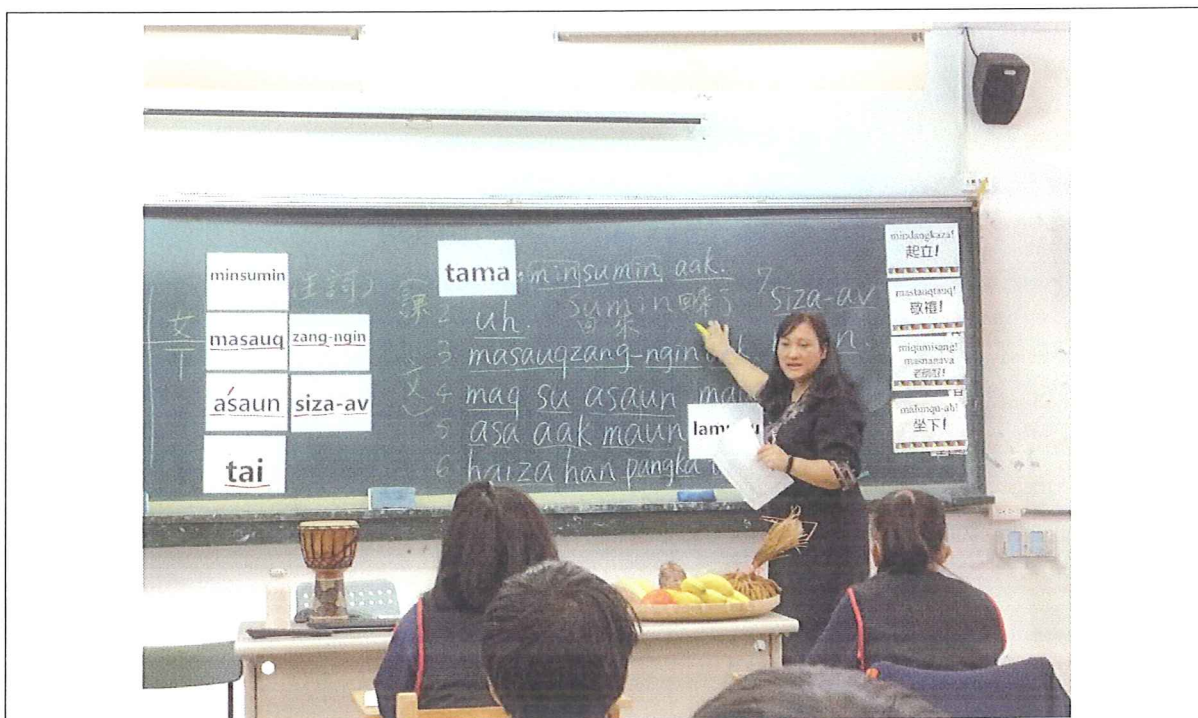 minsumin
masauq
zang-ngin
asaun
siza-av
tai
主詞)
課
文
tama
minsumin aak.
2 uh. sumin 回來了
回來
3 masauqzang-ngin
4 maq su asaun
5 asa aak maun
6 haiza han pangka
7 siza-av
mindangkaza!
起立!
mastauqtauq!
敬禮!
miqumisang!
masnanava
老師好!
malunqu-ah!
坐下!